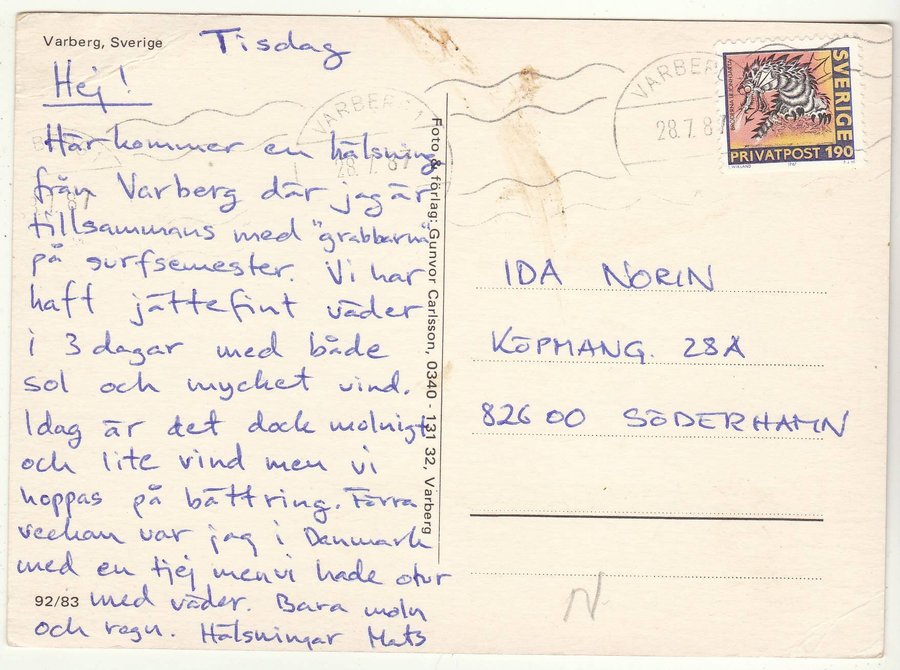 Varberg, Sverige
Tisdag
Hej!
Här kommer en hälsning
från Varberg där jag är
tillsammans med "grabbarna"
på surfsemester. Vi har
haft jättefint väder
i 3 dagar med både
sol och mycket vind.
Idag är det dock molnigt
och lite vind men vi
hoppas på bättring. Förra
veckan var jag i Danmark
med en tjej men vi hade otur
med väder. Bara moln
och regn. Hälsningar Mats
92/83
Foto & förlag: Gunvor Carlsson, 0340 - 131 32, Varberg
VARBERG 1
28.7.87
VARBERG
28.7.87
SVERIGE
PRIVATPOST 190
IDA NORIN
KÖPMANG. 28A
826 00 SÖDERHAMN
N